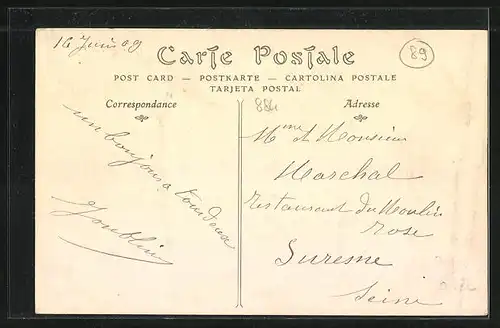 16 Juin 09
89
Carte Postale
POST CARD — POSTKARTE — CARTOLINA POSTALE
TARJETA POSTAL
Correspondance
un bonjour a tous deux
Goublin
Adresse
Mme et Monsieur
Marchal
restaurant du Moulin
rose
Suresne
Seine